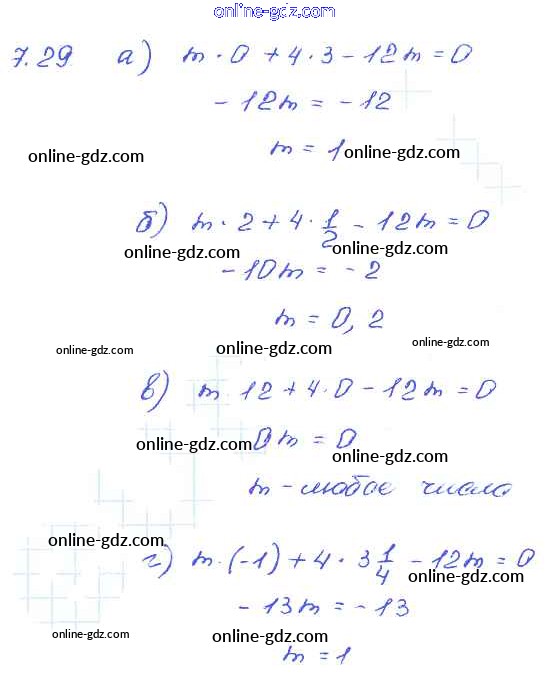 online-gdz.com
7.29 а) m · 0 + 4 · 3 - 12m = 0
- 12m = - 12
online-gdz.com
m = 1 online-gdz.com
б) m · 2 + 4 · 1/2 - 12m = 0
online-gdz.com online-gdz.com
- 10m = - 2
m = 0,2
online-gdz.com online-gdz.com online-gdz.com
в) m · 12 + 4 · 0 - 12m = 0
online-gdz.com 0m = 0 online-gdz.com
m - любое число
online-gdz.com
г) m · (-1) + 4 · 3 1/4 - 12m = 0
online-gdz.com
- 13m = - 13
online-gdz.com online-gdz.com
m = 1